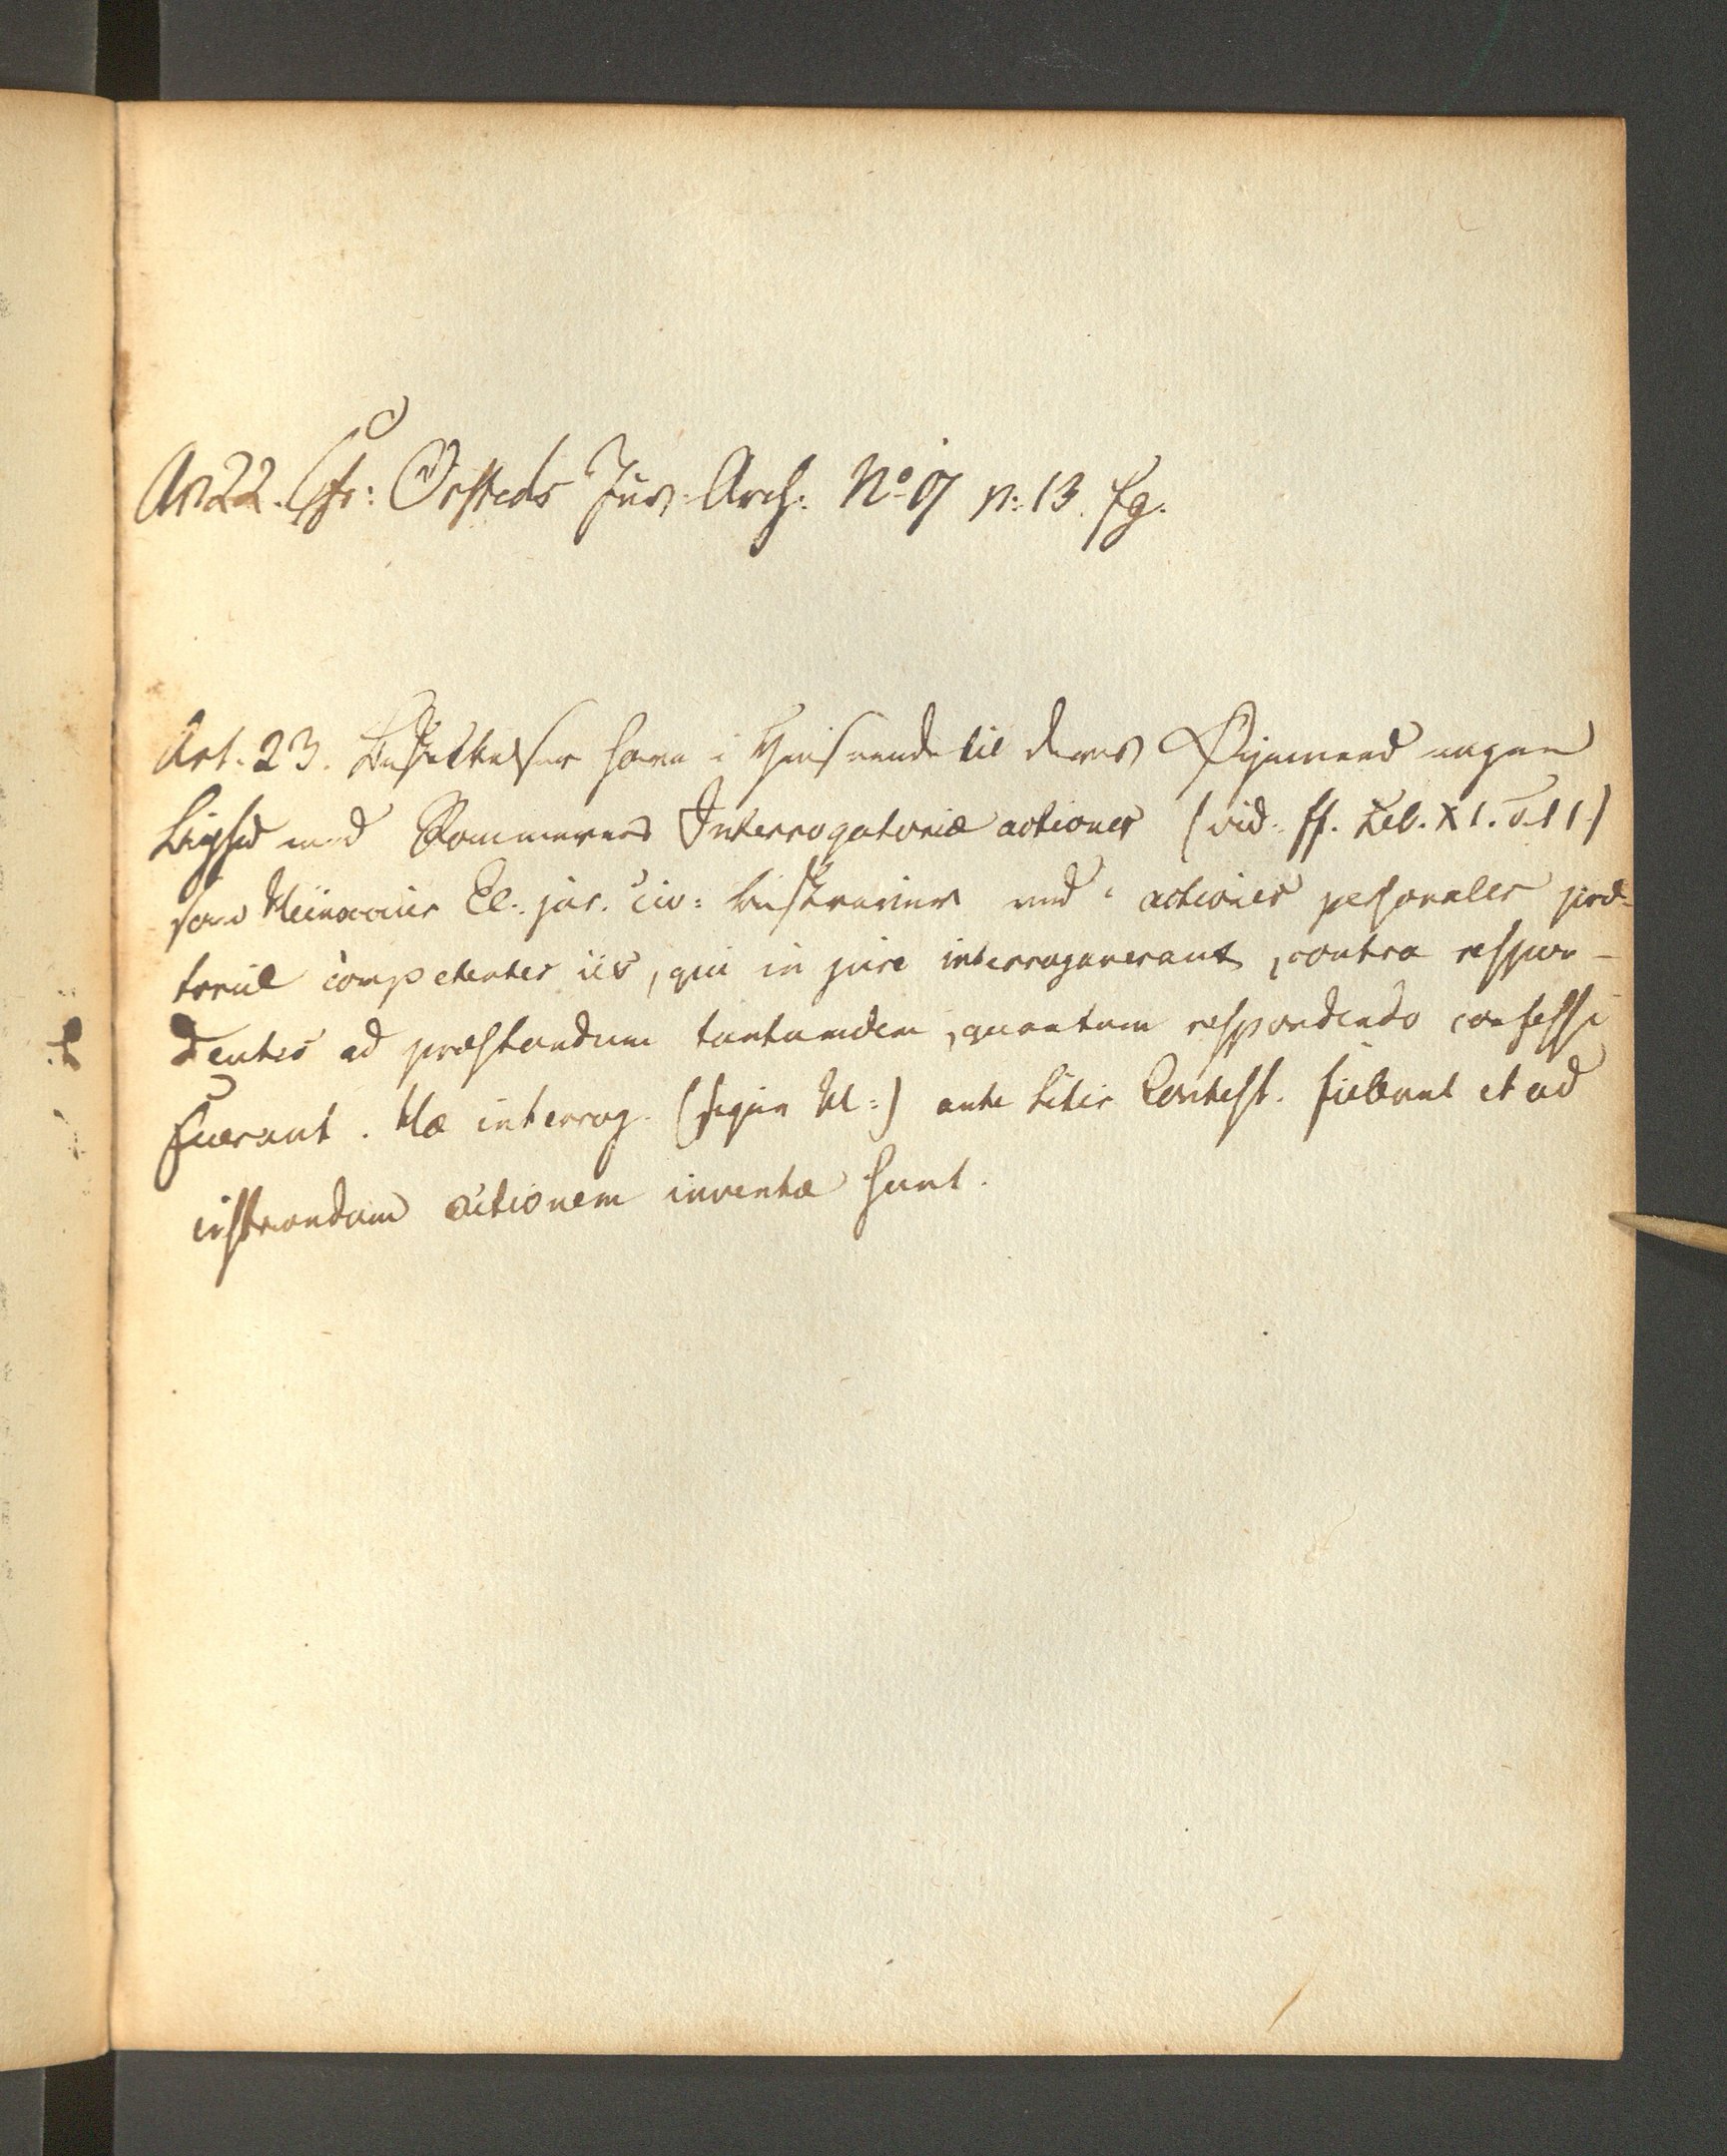 Art 22. Cfr: Ørsteds Jur: Arch: No 17 p: 13. fg.
Art. 23. have i Henseende til deres Øjemeed nogen
Lighed med Romernes Interrogatoriæ actiones (vid. ff. Lib. XI. T. 1 1.)
som Heineccius El. jur. civ: beskriver med: actiones personales præ-
toriæ competentes iis, qui in jure interrogaverant, contra respon-
dentes ad præstandum tantumdem, quantum respondendo confessi
fuerant. Hæ interrog. (siger H:) ante Litis Contest. fiebant et ad
instruendam actionem inventæ sunt.